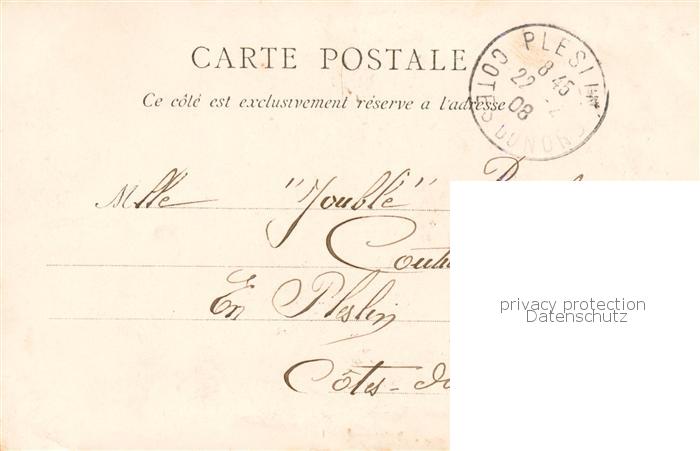 CARTE POSTALE
Ce côté est exclusivement réservé a l'adresse
PLESLIN
8 45
22 -2
08
COTES DU NORD
Mlle "Joublé"
En Pleslin
Côtes-du
privacy protection
Datenschutz